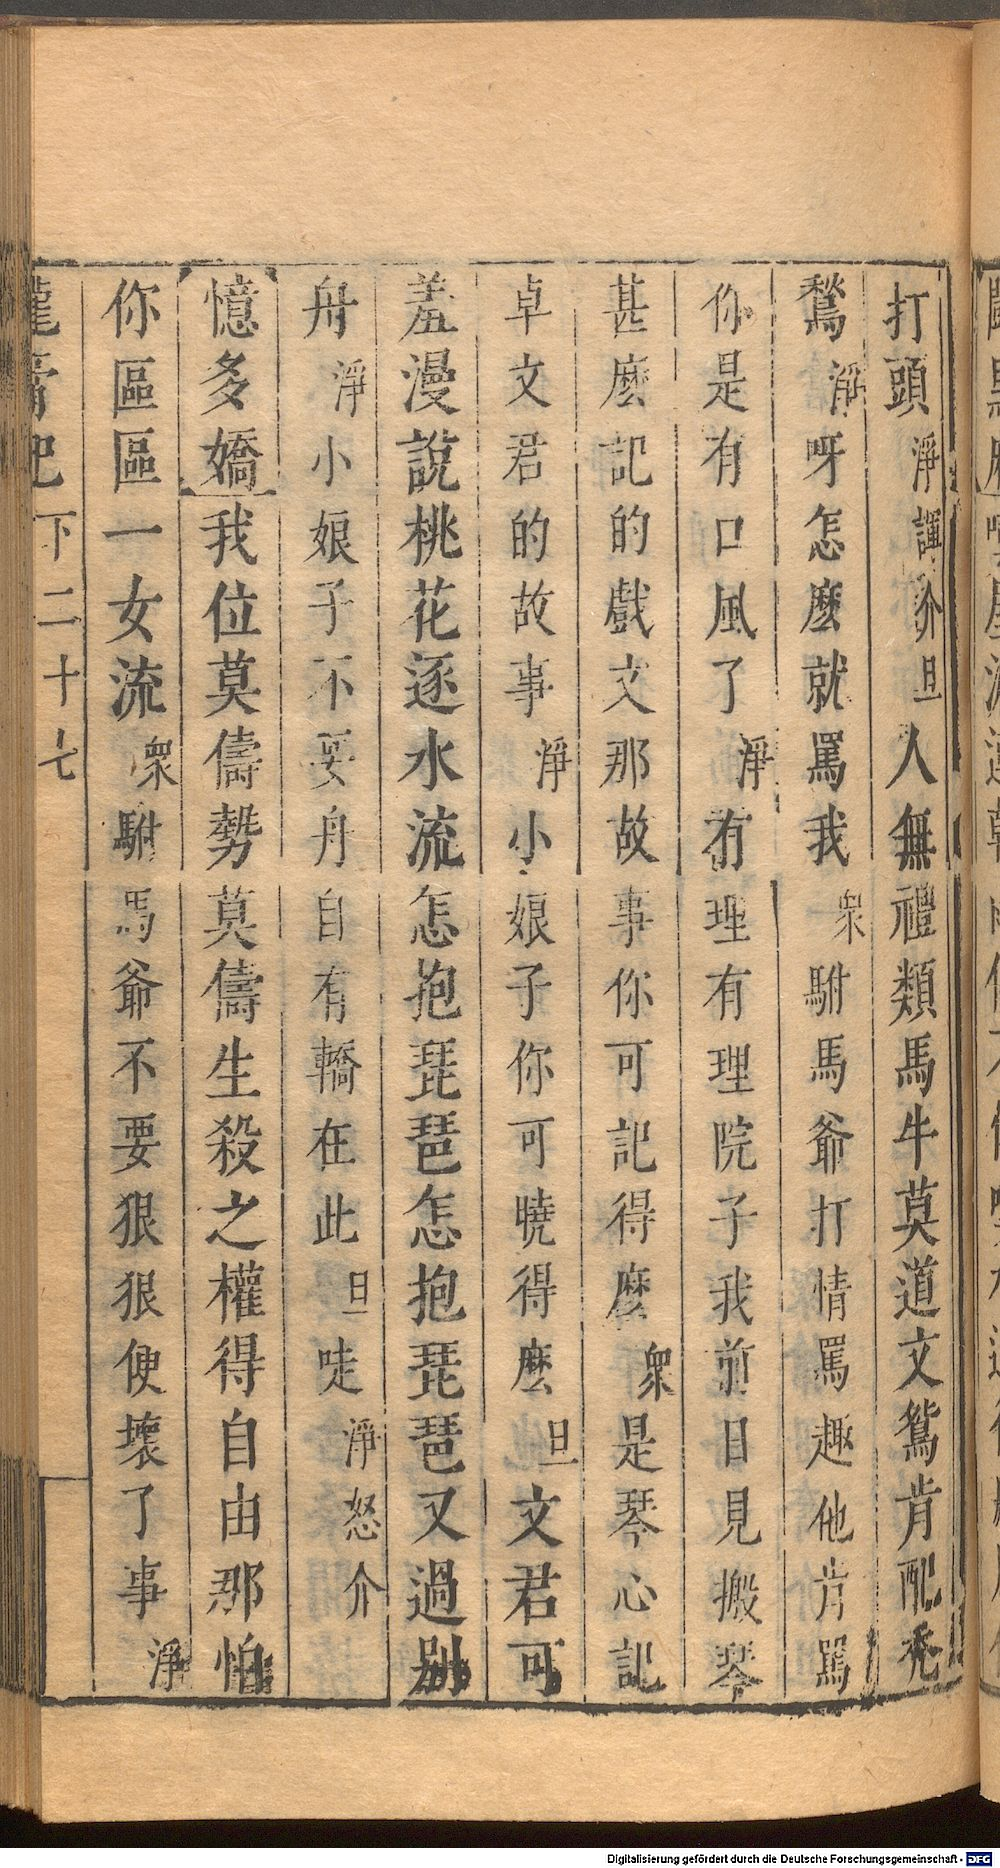 打頭淨諢介旦人無禮類馬牛莫道文鴛肯配禿
鶖淨呀怎麽就罵我衆駙馬爺打情罵趣他肯罵
你是有口風了淨有理有理院子我前日見搬琴
甚麽記的戲文那故事你可記得麽衆是琴心記
卓文君的故事淨小娘子你可曉得麽旦文君可
羞漫說桃花逐水流怎抱琵琶怎抱琵琶又過別
舟淨小娘子不要舟自有轎在此旦哇淨怒介
憶多嬌我位莫儔勢莫儔生殺之權得自由那怕
你區區一女流衆駙馬爺不要狠狠便壞了事淨
龍膏記下二十七
Digitalisierung gefördert durch die Deutsche Forschungsgemeinschaft - DFG